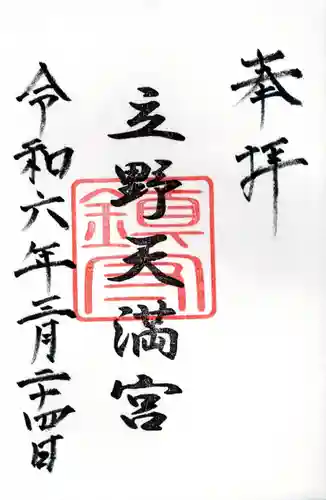 奉拝
立野天満宮
令和六年三月二十四日
鎮守